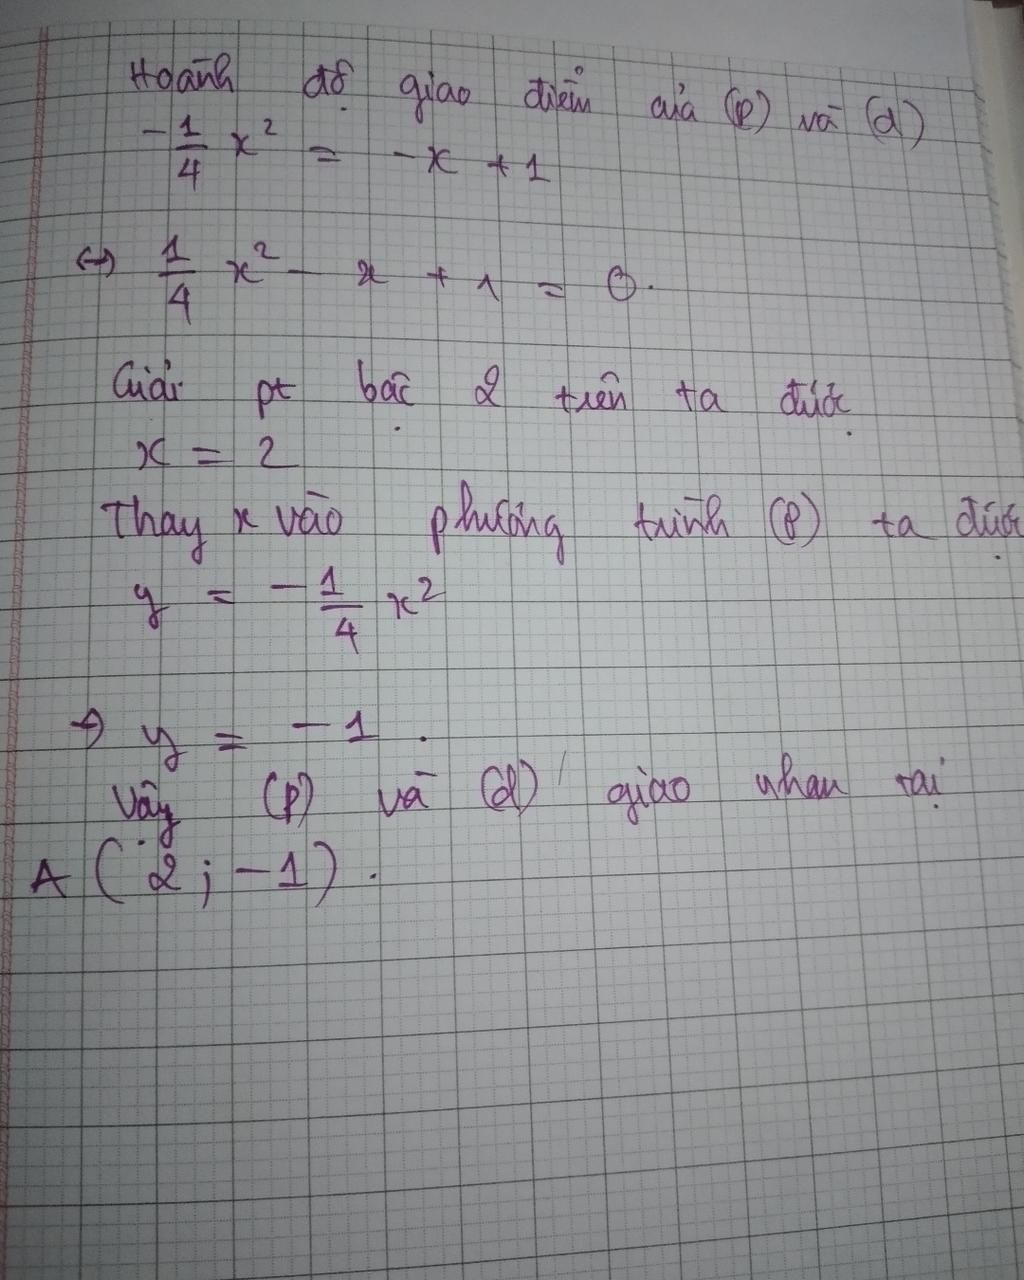 Hoành độ giao điểm của (P) và (d)
-1/4 x² = -x + 1
↔ 1/4 x² - x + 1 = 0.
Giải pt bậc 2 trên ta được
x = 2
Thay x vào phương trình (P) ta được
y = -1/4 x²
→ y = -1.
Vậy (P) và (d) giao nhau tại
A (2; -1).